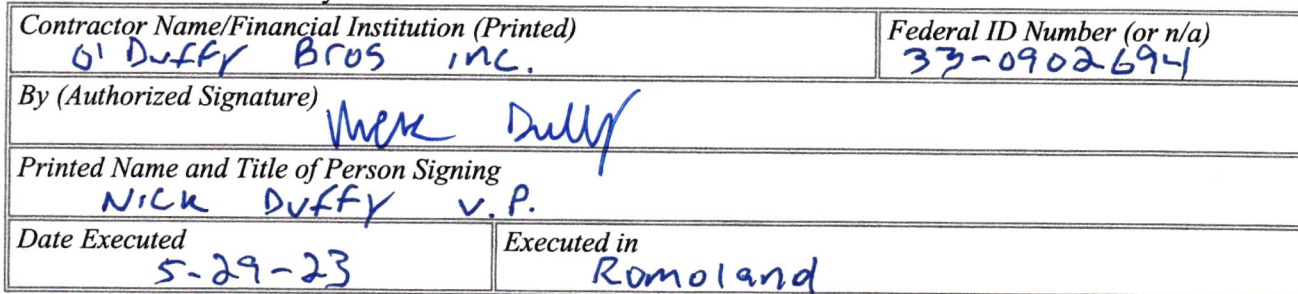 Contractor Name/Financial Institution (Printed)
O' Duffy Bros inc.
Federal ID Number (or n/a)
33-0902694
By (Authorized Signature)
Nick Duffy
Printed Name and Title of Person Signing
Nick Duffy V.P.
Date Executed
5-29-23
Executed in
Romoland